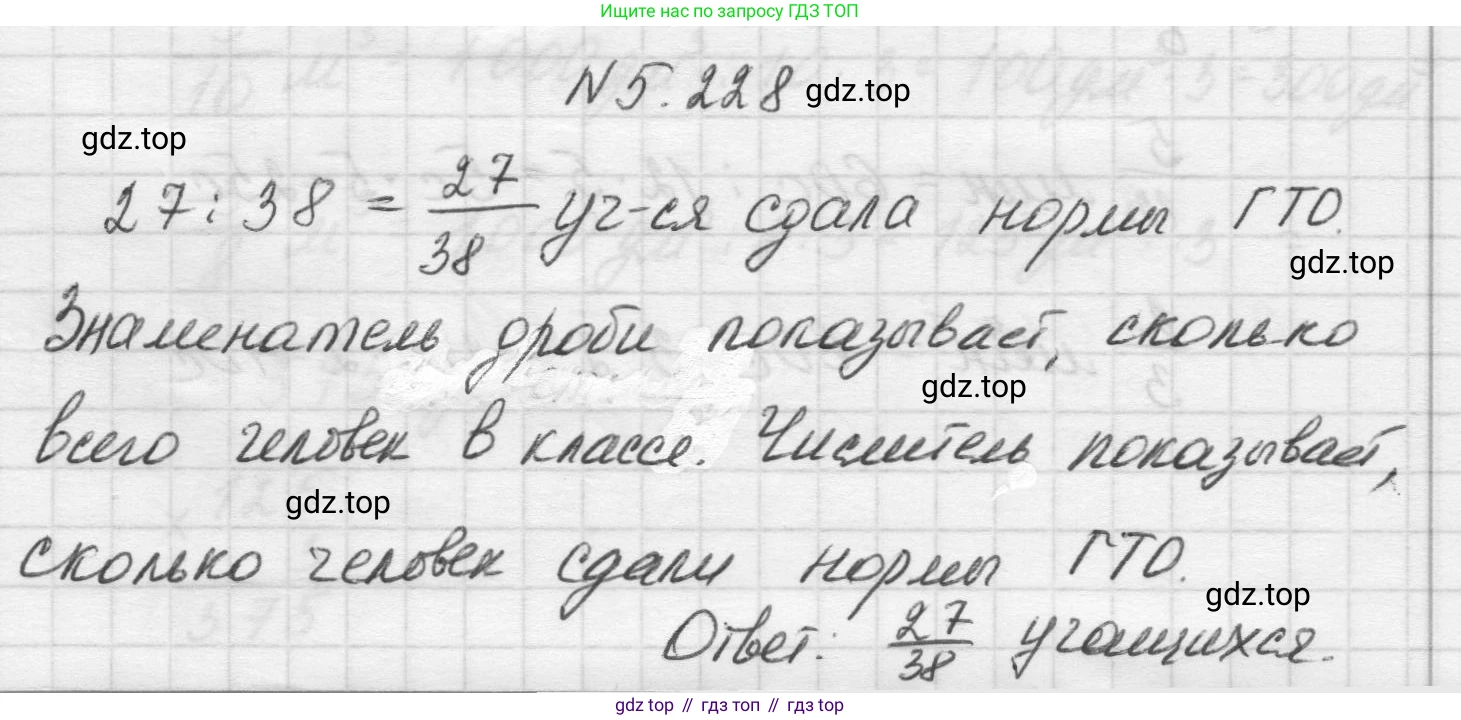 Ищите нас по запросу ГДЗ ТОП
N 5.228 gdz.top
gdz.top
27 : 38 = 27/38 уч-ся сдала нормы ГТО.
gdz.top
Знаменатель дроби показывает, сколько
gdz.top
всего человек в классе. Числитель показывает,
gdz.top
сколько человек сдали нормы ГТО.
gdz.top
Ответ: 27/38 учащихся.
gdz top // гдз топ // гдз top